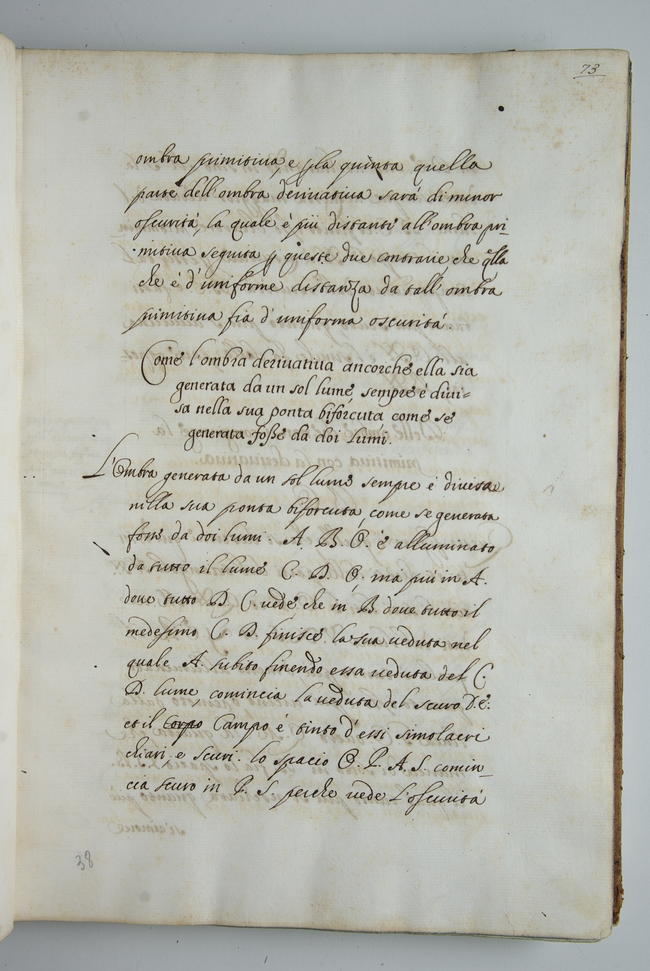 73
ombra primitiua, e p la quinta quella
parte dell'ombra deriuatiua sará di minor
oscuritá, la quale é piú distante all'ombra pri
mitiua seguita p queste due contrarie che qlla
che é d'uniforme distanza da tall' ombra
primitiua fia d'uniforma oscuritá.
Come l'ombra deriuatiua ancorche ella sia
generata da un sol lume, sempre é diui=
sa nella sua ponta biforcuta come se
generata foße da doi lumi.
L'Ombra generata da un sol lume sempre é diuisa
nella sua ponta biforcuta, come se generata
fosse da doi lumi. A. B. O. é alluminato
da tutto il lume C. D. O, ma piú in A.
doue tutto D. C. uede che in B. doue tutto il
medesimo C. D. finisce la sua ueduta nel
quale A. subito finendo essa ueduta del C.
D. lume, comincia la ueduta del scuro D. E.
et il Corpo Campo é tinto d'essi simolacri
chiari e scuri. lo spacio O. P. A. S. comin=
cia scuro in P. S. perche uede l'oscuritá
38